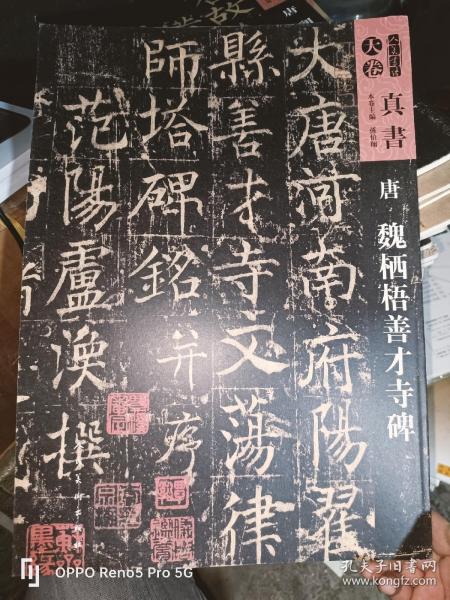 大唐河南府陽翟
縣善才寺文蕩律
師塔碑銘并序
范陽盧渙撰
人美書法
大卷
真書
本卷主編 孫伯翔
唐 魏栖梧善才寺碑
OPPO Reno5 Pro 5G
孔夫子旧书网
kongfz.com